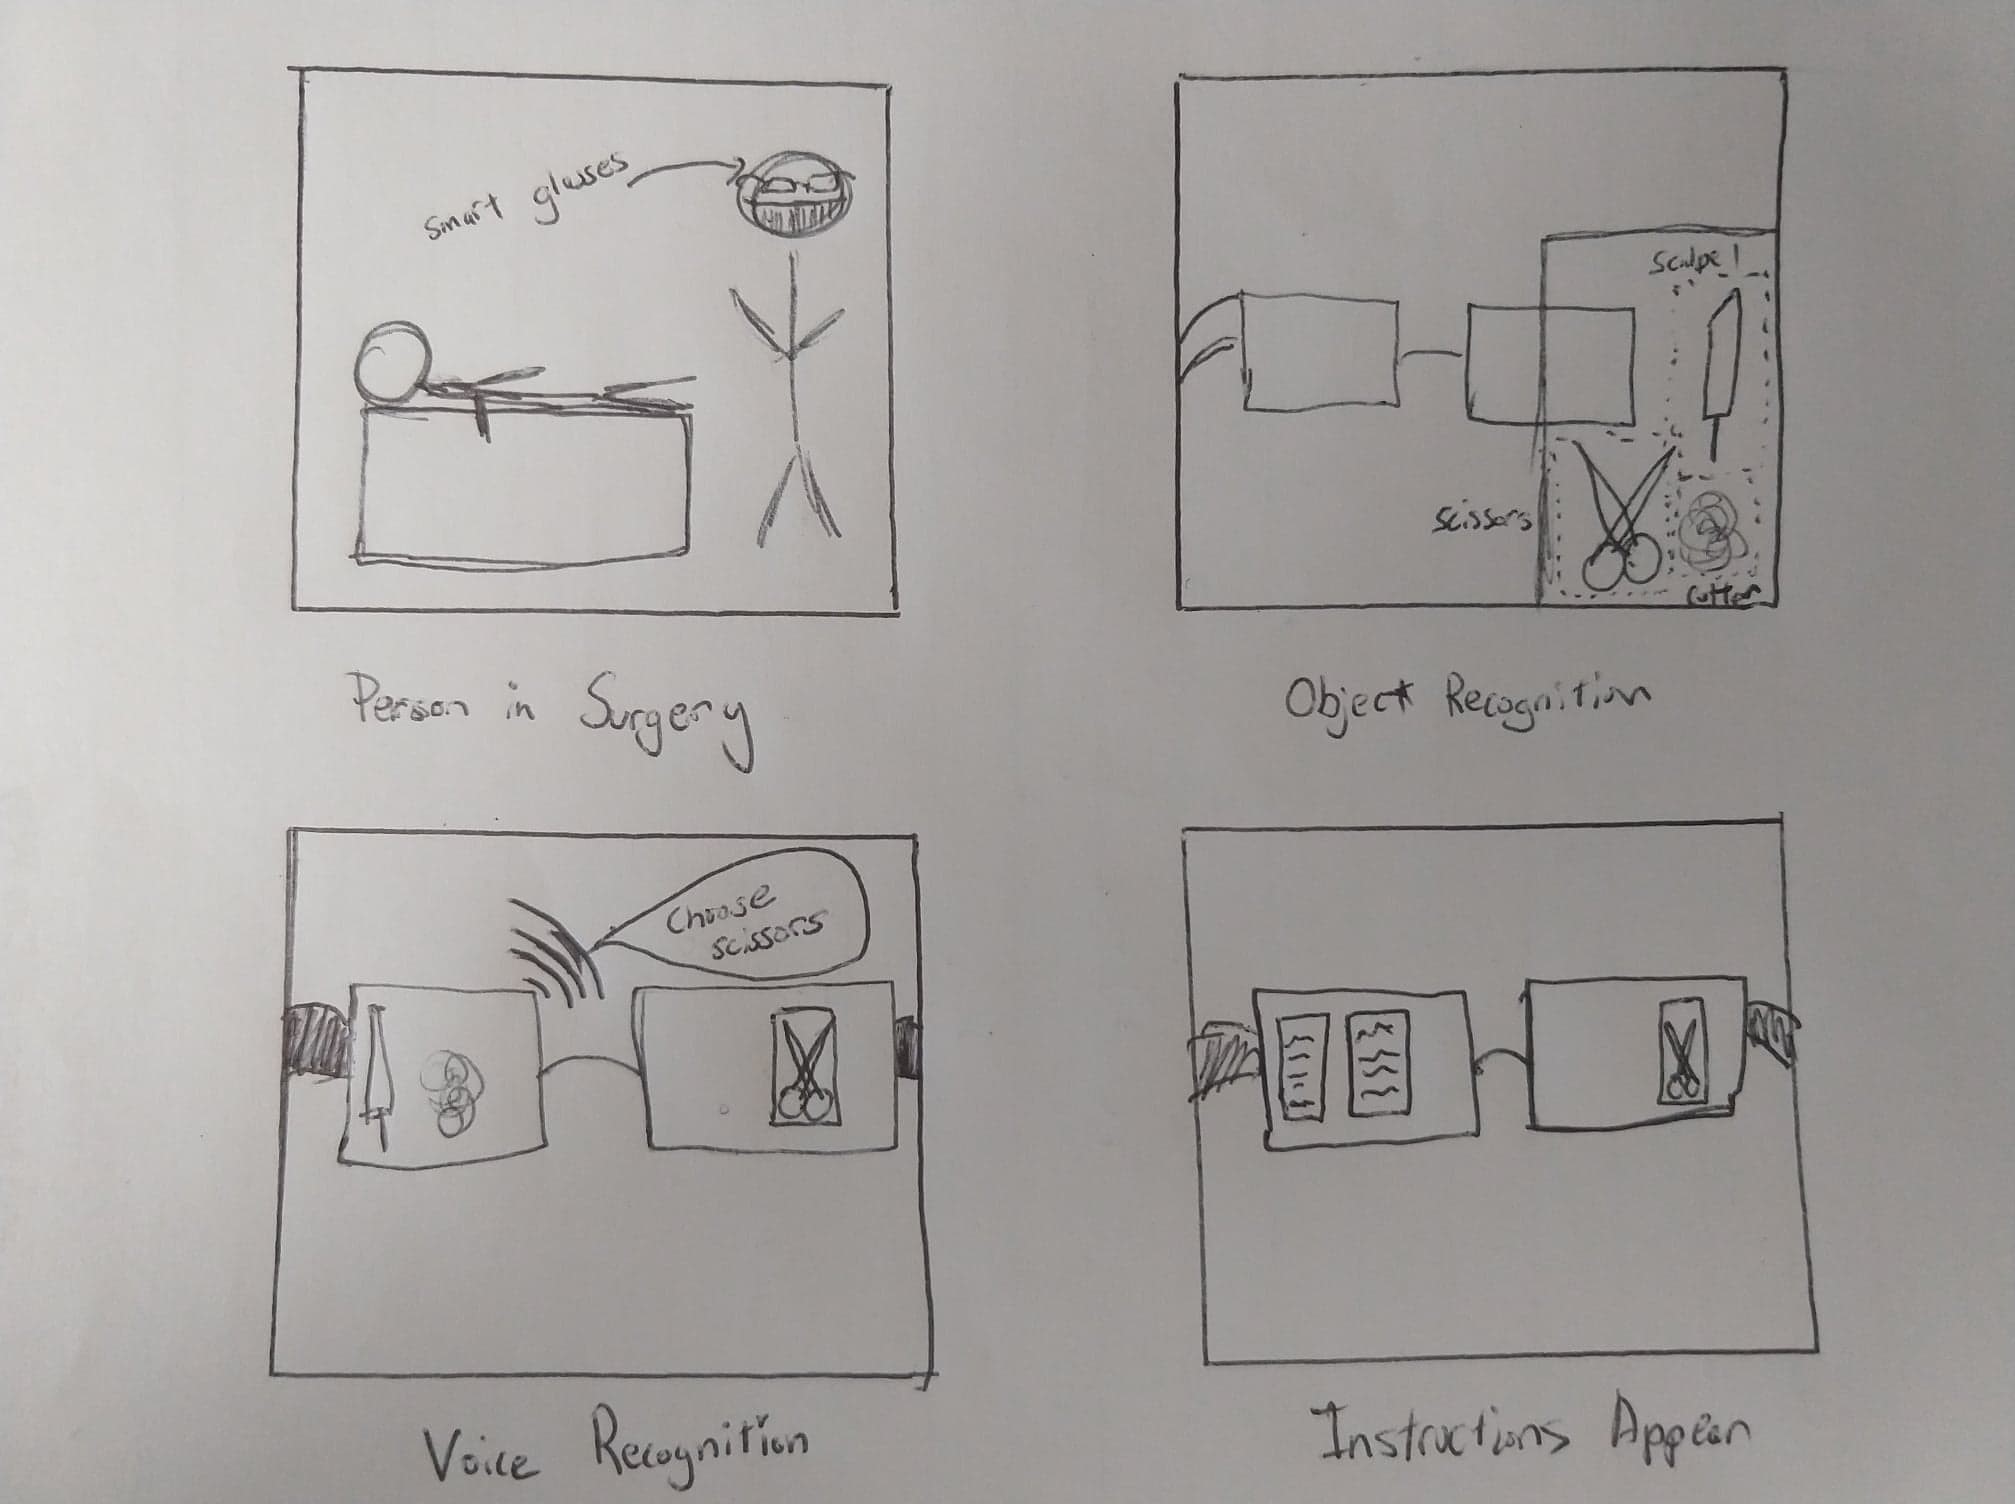 smart glasses
Person in Surgery
Scalpel
scissors
Cutter
Object Recognition
Choose
scissors
Voice Recognition
Instructions Appear